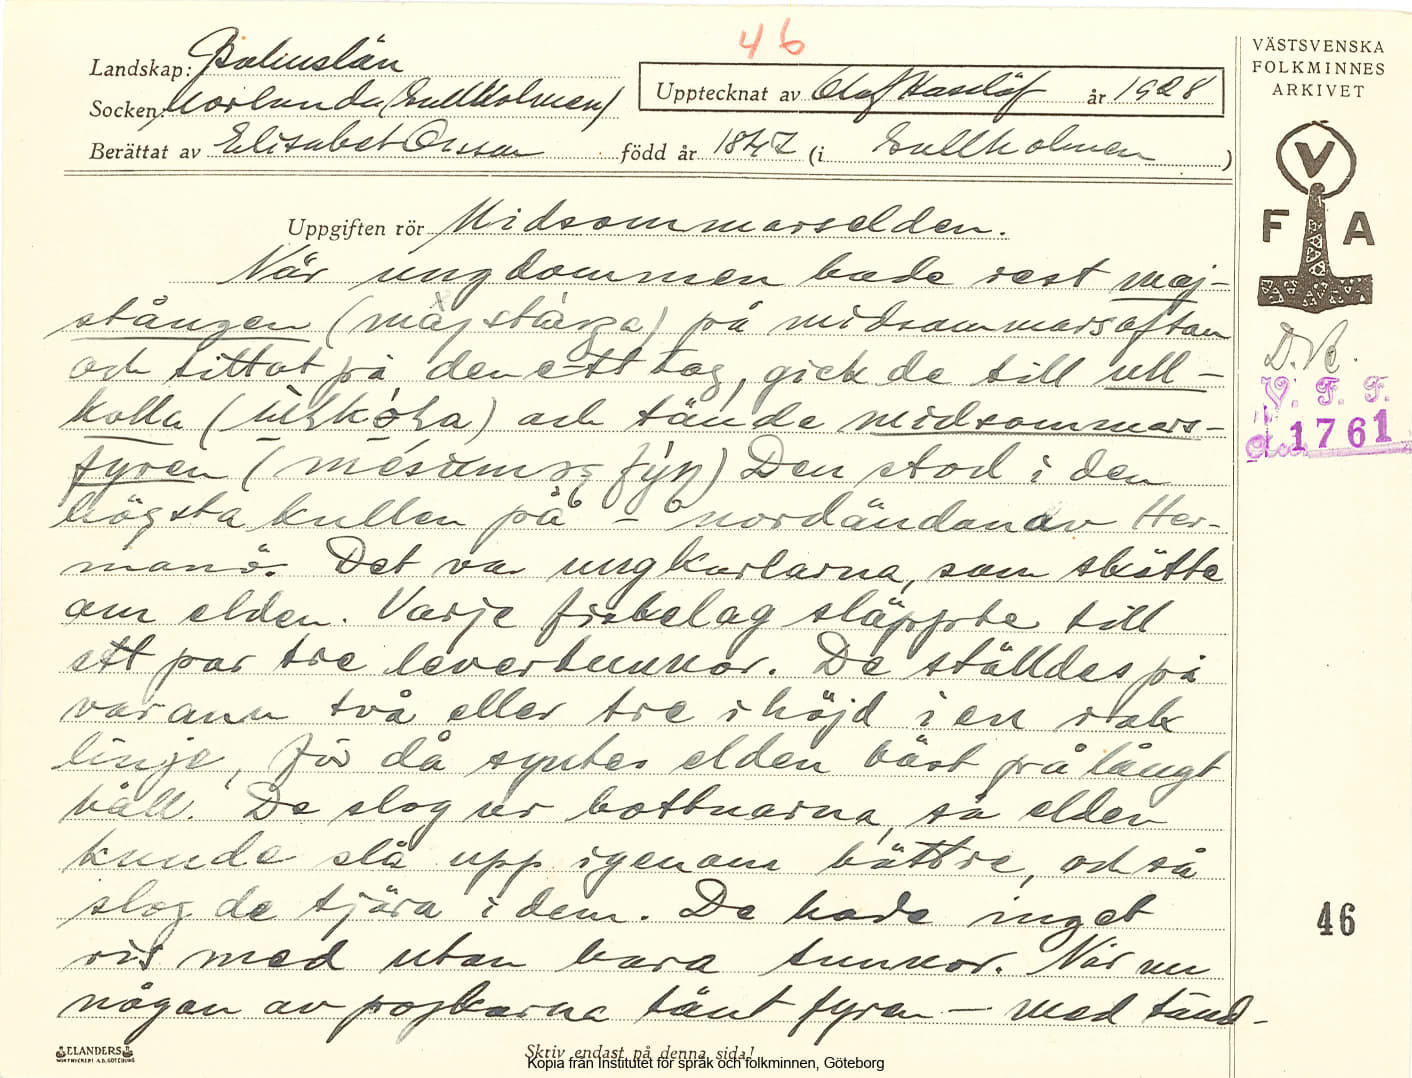 46
Landskap: Bohuslän
Socken: Morlanda (Gullholmen)
Upptecknat av Olof Hasslöf år 1928
Berättat av Elisabet Olsson född år 1847 (i Gullholmen)
VÄSTSVENSKA
FOLKMINNES
ARKIVET
V
F A
D.K.
V. F. F.
1761
Uppgiften rör Midsommarselden.
När ungdommen hade rest maj-
stången ( ) på midsommarsaftan
och tittat på den ett tag, gick de till ull-
kolla ( ) och tände midsommars-
fyren ( ) Den stod i den
högsta kullen på - nordändan av Her-
manö. Det va ungkarlarna, som skötte
om elden. Varje fiskelag släppte till
ett par tre levertunnor. De ställdes på
varann två eller tre i höjd i en rak
linje, för då syntes elden bäst på långt
håll. De slog ur bottnarna, så elden
kunde slå upp igenom bättre, och så
slog de tjära i dem. De hade inget
ris med utan bara tunnor. När nu
någon av pojkarna tänt fyren – med tänd-
46
ELANDERS
Skriv endast på denna sida!
Kopia från Institutet för språk och folkminnen, Göteborg